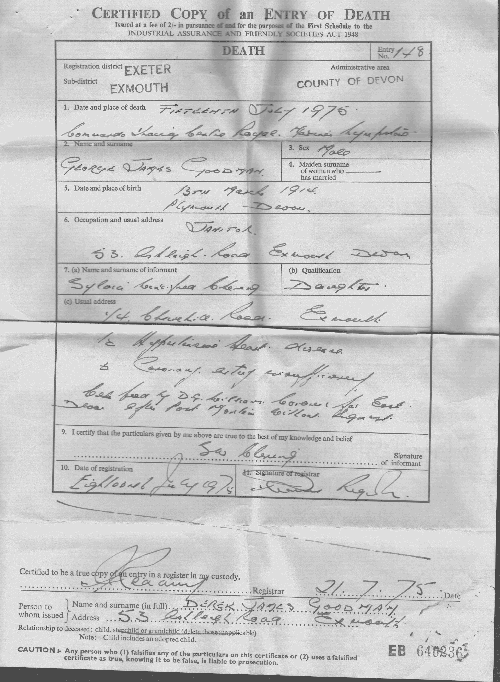 CERTIFIED COPY of an ENTRY OF DEATH
Issued at a fee of 2/- in pursuance of and for the purposes of the First Schedule to the
INDUSTRIAL ASSURANCE AND FRIENDLY SOCIETIES ACT 1948
DEATH
Entry No. 148
Registration district EXETER
Administrative area
Sub-district EXMOUTH
COUNTY OF DEVON
1. Date and place of death Fifteenth July 1975
2. Name and surname
George James Goodman
3. Sex Male
4. Maiden surname of woman who has married
5. Date and place of birth 13th March 1914
Plymouth - Devon
6. Occupation and usual address Janitor
53 Ashleigh Road Exmouth Devon
7. (a) Name and surname of informant
(b) Qualification
Sylvia
Daughter
(c) Usual address
Road Exmouth
heart disease
Coronary insufficiency
after Post Mortem without
9. I certify that the particulars given by me above are true to the best of my knowledge and belief
Signature of informant
10. Date of registration
Eighteenth July 1975
11. Signature of registrar
Certified to be a true copy of an entry in a register in my custody.
Registrar 21.7.75 Date
Person to whom issued
Name and surname (in full) DEREK JAMES GOODMAN
Address 53 Ashleigh Road Exmouth
Relationship to deceased: child, stepchild or grandchild (delete those inapplicable)
Note: Child includes an adopted child.
CAUTION:- Any person who (1) falsifies any of the particulars on this certificate or (2) uses a falsified
certificate as true, knowing it to be false, is liable to prosecution.
EB 640236